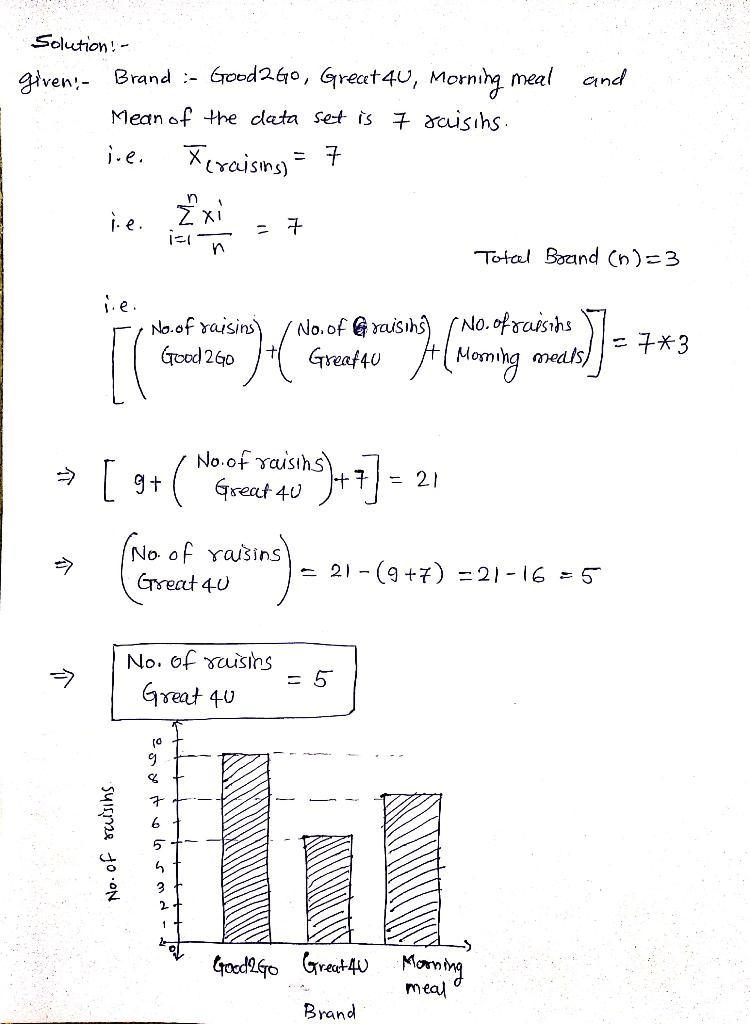 Solution:-
given:- Brand :- Good2Go, Great4U, Morning meal and
Mean of the data set is 7 raisins.
i.e. x̅(raisins) = 7
i.e. n Σ i=1 xi / n = 7
Total Brand (n)=3
i.e.
[(No. of raisins Good2Go) + (No. of raisins Great4U) + (No. of raisins Morning meals)] = 7*3
⇒ [ 9+ (No. of raisins Great 4U) +7] = 21
⇒ (No. of raisins Great 4U) = 21-(9+7) =21-16 =5
⇒ No. of raisins Great 4U = 5
10
9
8
7
6
5
4
3
2
1
0
No. of raisins
Good2Go Great4U Morning meal
Brand